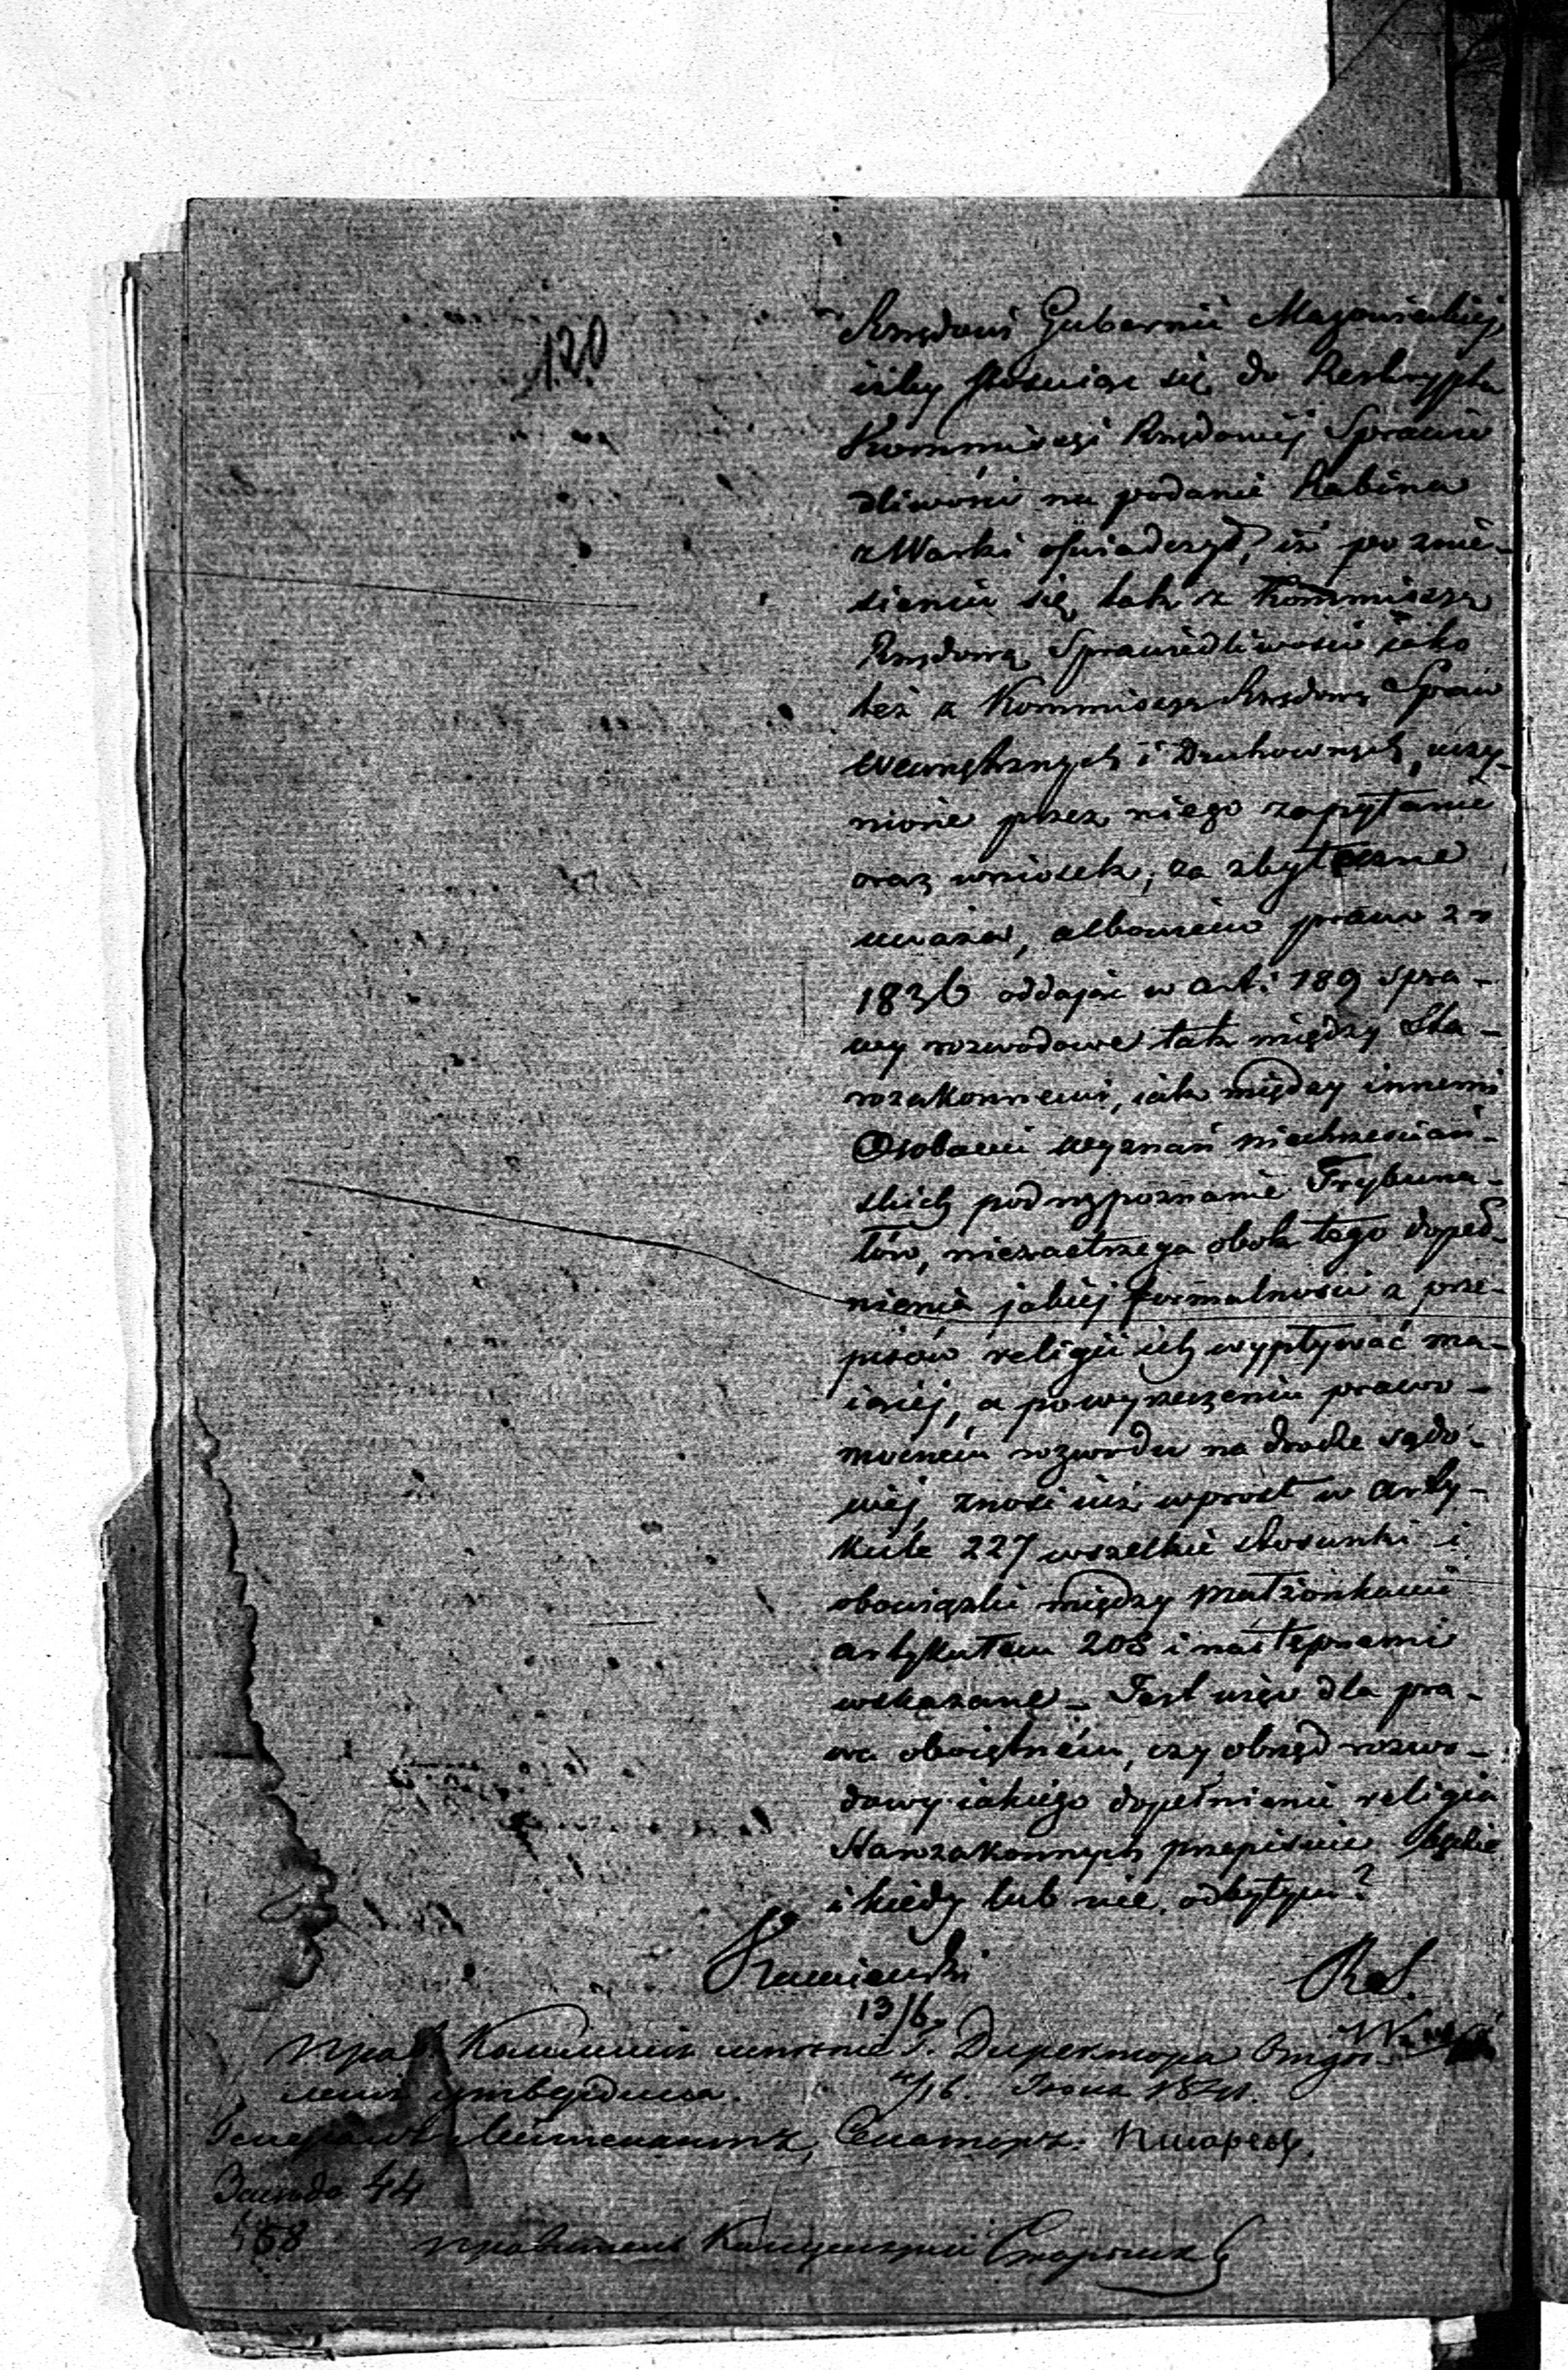 120
Rządowi Gubernii Mazowieckiej,
iżby stosując się do Reskryptu
Kommissyi Rządowej Sprawie
dliwości na podanie Rabina
z Warki oświadczył, iż po znie-
sieniu się tak z Kommissyą
Rządową Sprawiedliwości jako
też z Kommissyą Rządową Spraw
Wewnętrznych i Duchownych, uczy-
nione przez niego zapytanie
oraz wniosek, za zbyteczne
uważa, albowiem prawo z r
1836 oddając w art: 189 spra-
wy rozwodowe tak między Sta-
rozakonnemi, jak między innemi
Osobami wyznań niechrześciań-
skich pod rozpoznanie Trybuna-
łów, niezastrzega obok tego dopeł-
nienia jakiej formalności z prze-
pisów religii ich wypływać ma-
iącej, a po wyrzeczeniu prawo-
mocnem rozwodu na drodze sądo-
wej, znosi już wprost w arty-
kule 227 wszelkie stosunki i
obowiązki między małżonkami
artykułem 208 i następnemi
wskazane – Jest więc dla pra-
wa obojętném, czy obrzęd rozwo-
dowy iakiego dopełnienie religia
Starozakonnych przepisuie będzie
i kiedy lub nie odbytym?
Kamieński
RS.
13/6
Прав. Коммисія мнѣніе Г. Директора Отдѣ-
ленія утвердила. 4/16. Іюня 1841.
Генералъ-Лейтенантъ, Сенаторъ:
44
468
Правитель Канцеляріи